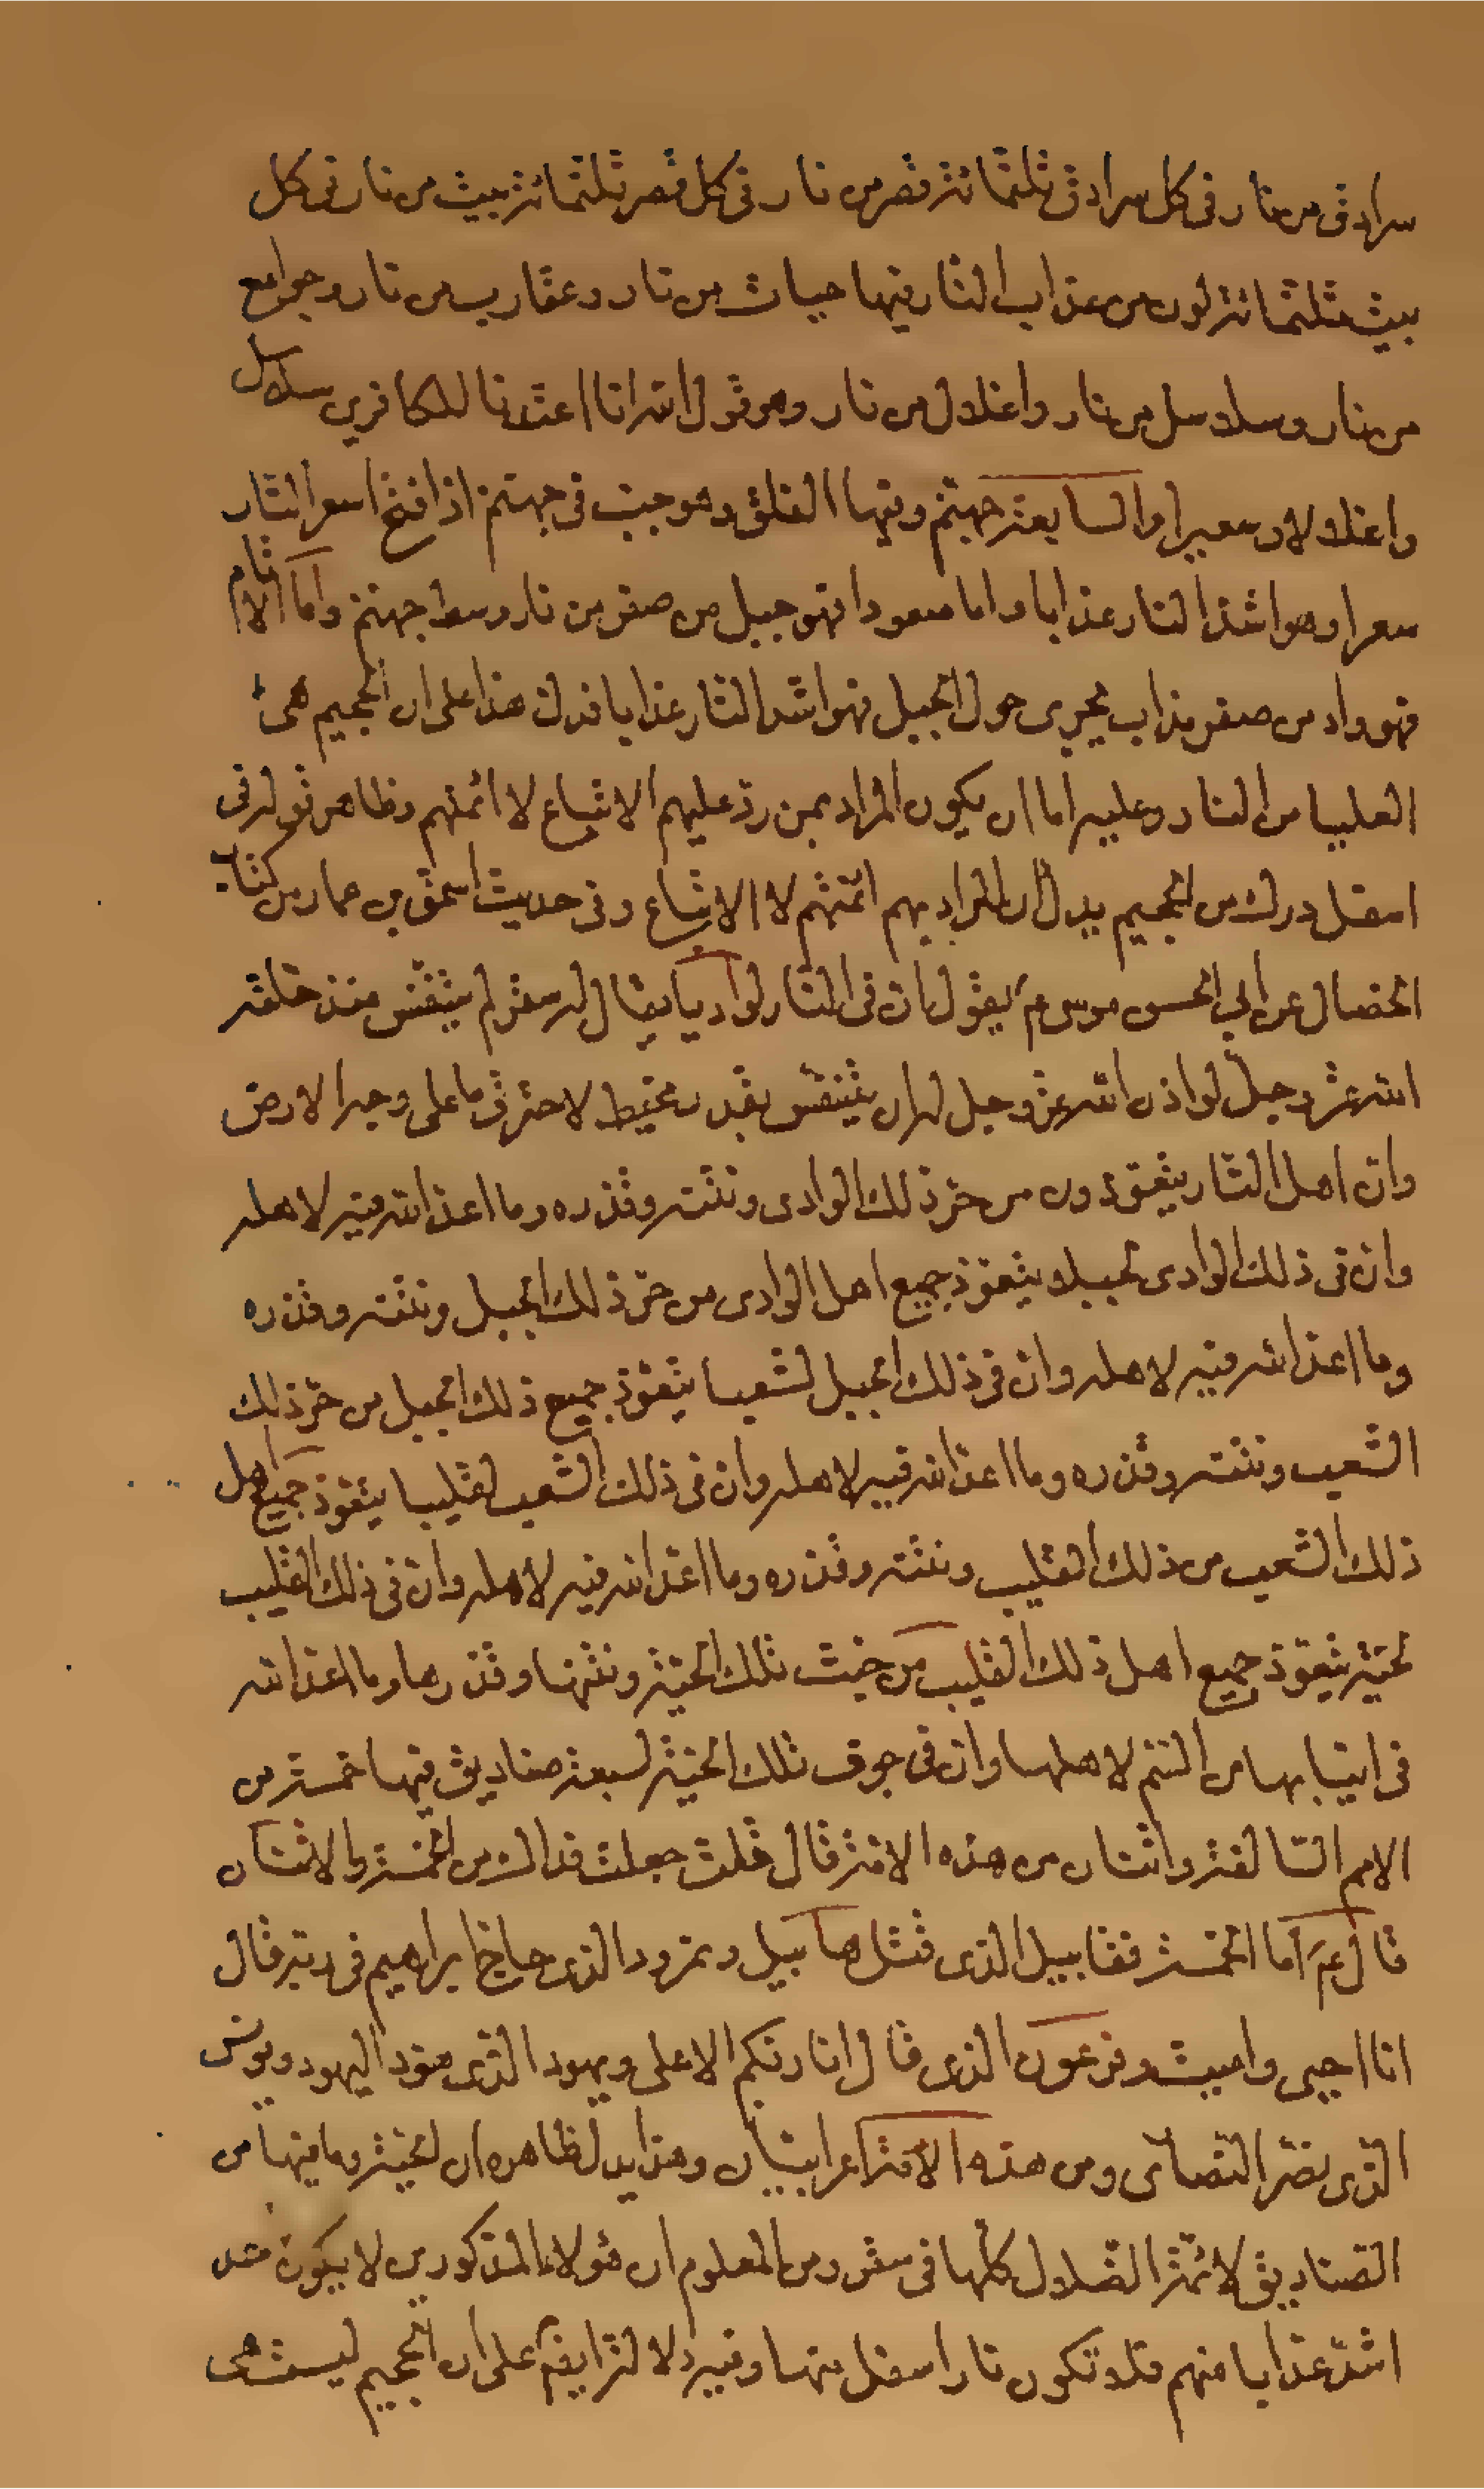 سرادق من نار في كل سرادق ثلثمائة قصر من نار في كل قصر ثلثمائة بيت من نار في كل
بيت ثلثمائة لون من عذاب النار فيها حيات من نار وعقارب من نار وجوامع
من نار وسلاسل من نار واغلال من نار وهو قول الله انا اعتدنا للكافرين سلاسل
واغلالا وسعيرا والسابعة جهنم وفيها الفلق وهو جب في جهنم اذا فتح اسعر النار
سعرا وهو اشد النار عذابا واما صعودا فهو جبل من صفر من نار وسط جهنم واما الاثام
فهو واد من صفر مذاب يجرى حول الجبل فهو اشد النار عذابا فدل هذا على ان الجحيم هى
العليا من النار وعليه اما ان يكون المراد بمن رد عليهم الاتباع لا ائمتهم وظاهر قوله في
اسفل درك من الجحيم يدل ان المراد بهم ائمتهم لا الاتباع وفى حديث اسحق بن عمار من كتاب
الخصال عن ابي الحسن موسى عم يقول ان فى النار لواديا يقال له سقر لم يتنفس منذ خلقه
الله عز وجل لو اذن الله عز وجل له ان يتنفس بقدر مخيط لاحترق ما على وجه الارض
وان اهل النار يتعوذون من حر ذلك الوادى ونتنه وقذره وما اعد الله فيه لاهله
وان فى ذلك الوادى لجبلا يتعوذ جميع اهل الوادى من حر ذلك الجبل ونتنه وقذره
وما اعد الله فيه لاهله وان في ذلك الجبل لشعبا يتعوذ جميع ذلك الجبل من حر ذلك
الشعب ونتنه وقذره وما اعد الله فيه لاهله وان فى ذلك الشعب لقليبا يتعوذ جميع اهل
ذلك الشعب من ذلك القليب ونتنه وقذره وما اعد الله فيه لاهله وان فى ذلك القليب
لحية يتعوذ جميع اهل ذلك القليب من خبث تلك الحية ونتنها وقذرها وما اعد الله
فى انيابها من السم لاهلها وان فى جوف تلك الحية لسبعة صناديق فيها خمسة من
الامم السالفة واثنان من هذه الامة قال قلت جعلت فداك من الخمسة والاثنان
قال عم اما الخمسة فقابيل الذى قتل هابيل ونمرود الذى حاج ابراهيم فى ربه قال
انا احيى واميت وفرعون الذى قال انا ربكم الاعلى ويهود الذى هود اليهود وبولس
الذى نصر النصارى ومن هذه الامة اعرابيان وهذا يدل ظاهره ان الحية وما فيها من
الصناديق لائمة الضلال كلها فى سقر ومن المعلوم ان هؤلاء المذكورين لا يكون احد
اشد عذابا منهم فلا تكون نار اسفل منها وفيه دلالة ايضم على ان الجحيم ليست هى